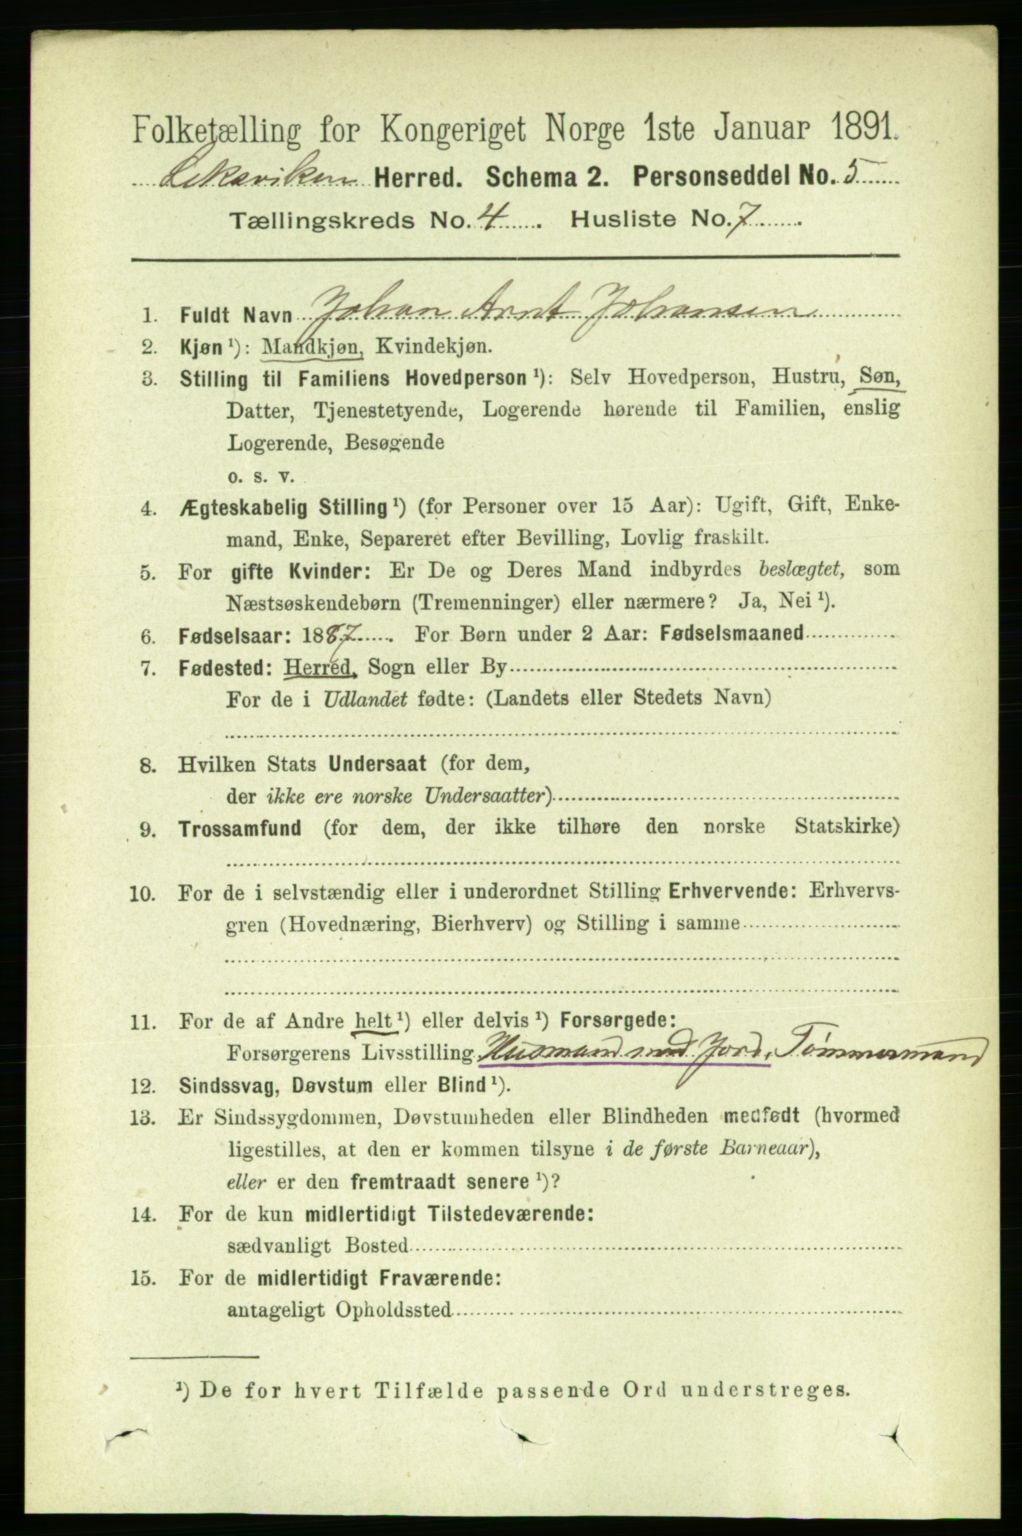 Folketælling for Kongeriget Norge 1ste Januar 1891.
Leksviken Herred. Schema 2. Personseddel No. 5
Tællingskreds No. 4. Husliste No. 7.
1. Fuldt Navn Johan Arnt Johansen
2. Kjøn ¹): Mandkjøn, Kvindekjøn.
3. Stilling til Familiens Hovedperson ¹): Selv Hovedperson, Hustru, Søn,
Datter, Tjenestetyende, Logerende hørende til Familien, enslig
Logerende, Besøgende
o. s. v.
4. Ægteskabelig Stilling ¹) (for Personer over 15 Aar): Ugift, Gift, Enke-
mand, Enke, Separeret efter Bevilling, Lovlig fraskilt.
5. For gifte Kvinder: Er De og Deres Mand indbyrdes beslægtet, som
Næstsøskendebørn (Tremenninger) eller nærmere? Ja, Nei ¹).
6. Fødselsaar: 1887. For Børn under 2 Aar: Fødselsmaaned
7. Fødested: Herred, Sogn eller By
For de i Udlandet fødte: (Landets eller Stedets Navn)
8. Hvilken Stats Undersaat (for dem,
der ikke ere norske Undersaatter)
9. Trossamfund (for dem, der ikke tilhøre den norske Statskirke)
10. For de i selvstændig eller i underordnet Stilling Erhvervende: Erhvervs-
gren (Hovednæring, Bierhverv) og Stilling i samme
11. For de af Andre helt ¹) eller delvis ¹) Forsørgede:
Forsørgerens Livsstilling Husmand med Jord, Tömmermand
12. Sindssvag, Døvstum eller Blind ¹).
13. Er Sindssygdommen, Døvstumheden eller Blindheden medfødt (hvormed
ligestilles, at den er kommen tilsyne i de første Barneaar),
eller er den fremtraadt senere ¹)?
14. For de kun midlertidigt Tilstedeværende:
sædvanligt Bosted
15. For de midlertidigt Fraværende:
antageligt Opholdssted
¹) De for hvert Tilfælde passende Ord understreges.